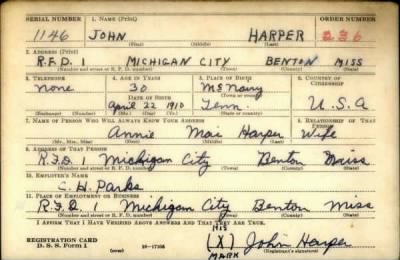 SERIAL NUMBER 1. NAME (Print) ORDER NUMBER
1146 JOHN HARPER 236
(First) (Middle) (Last)
2. ADDRESS (Print)
R.F.D. 1 MICHIGAN CITY BENTON MISS
(Number and street or R. F. D. number) (Town) (County) (State)
3. TELEPHONE 4. AGE IN YEARS 5. PLACE OF BIRTH 6. COUNTRY OF CITIZENSHIP
None 30 McNary
DATE OF BIRTH
April 22 1910 Tenn. U.S.A
(Exchange) (Number) (Mo.) (Day) (Yr.) (State or country)
7. NAME OF PERSON WHO WILL ALWAYS KNOW YOUR ADDRESS 8. RELATIONSHIP OF THAT PERSON
Annie Mai Harper Wife
(Mr., Mrs., Miss) (First) (Middle) (Last)
9. ADDRESS OF THAT PERSON
R.F.D. 1 Michigan City Benton Miss
(Number and street or R. F. D. number) (Town) (County) (State)
10. EMPLOYER'S NAME
C. H. Parks
11. PLACE OF EMPLOYMENT OR BUSINESS
R.F.D. 1 Michigan City Benton Miss
(Number and street or R. F. D. number) (Town) (County) (State)
I AFFIRM THAT I HAVE VERIFIED ABOVE ANSWERS AND THAT THEY ARE TRUE.
HIS
REGISTRATION CARD (X) John Harper
D. S. S. Form 1 (over) 16-17105 MARK (Registrant's signature)